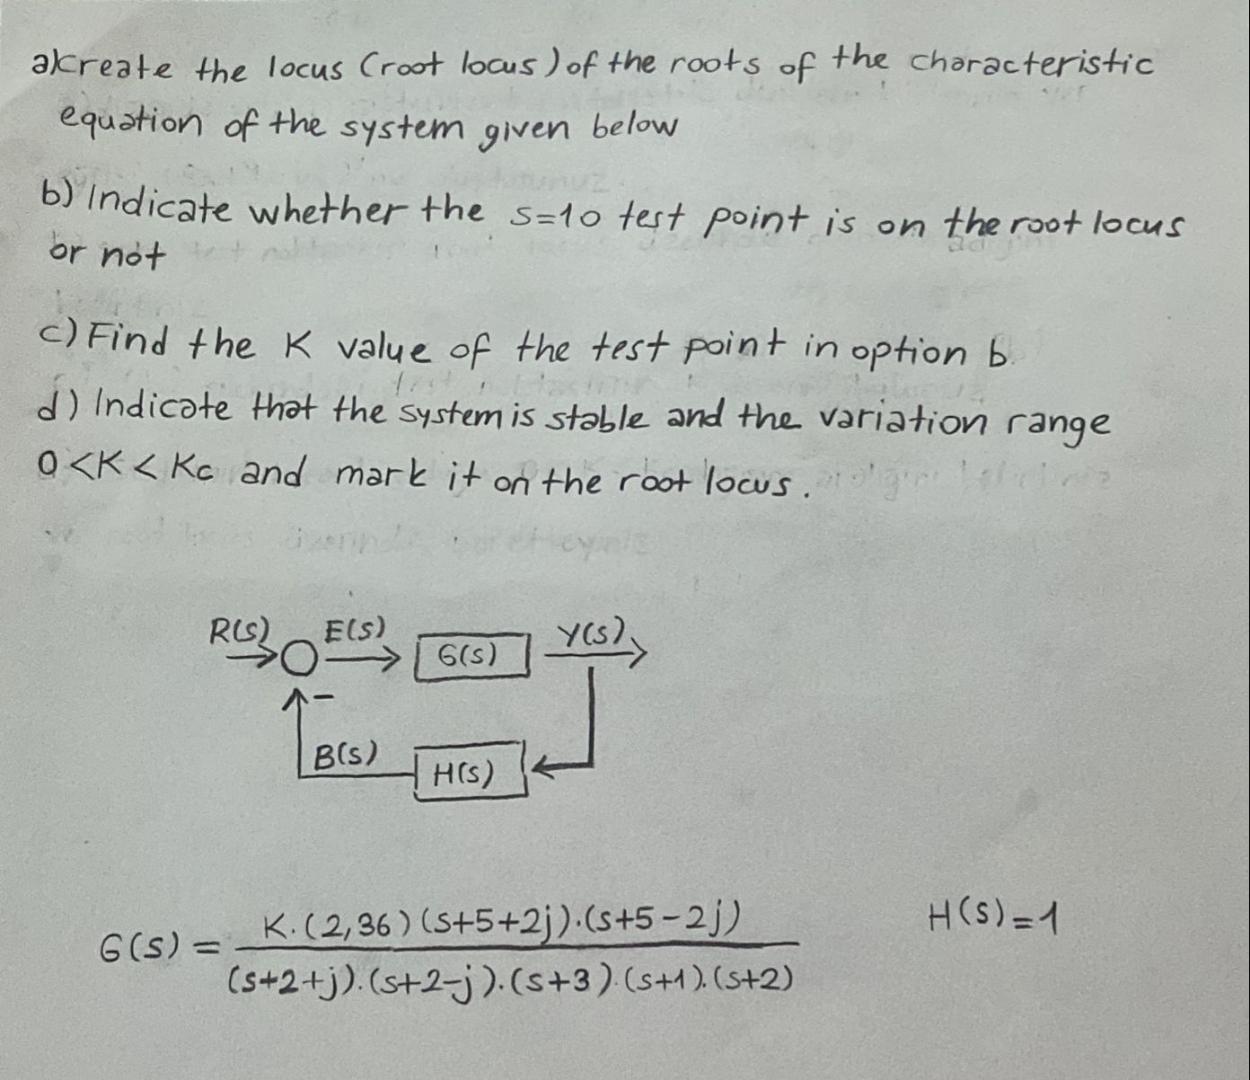 a)create the locus (root locus) of the roots of the characteristic
equation of the system given below
b) Indicate whether the s=10 test point is on the root locus
or not
c) Find the K value of the test point in option b.
d) Indicate that the system is stable and the variation range
0<K<Kc and mark it on the root locus.
R(s) E(s) G(s) Y(s)
-
B(s) H(s)
G(s) = K.(2,36)(s+5+2j).(s+5-2j) / (s+2+j).(s+2-j).(s+3).(s+1).(s+2) H(s)=1